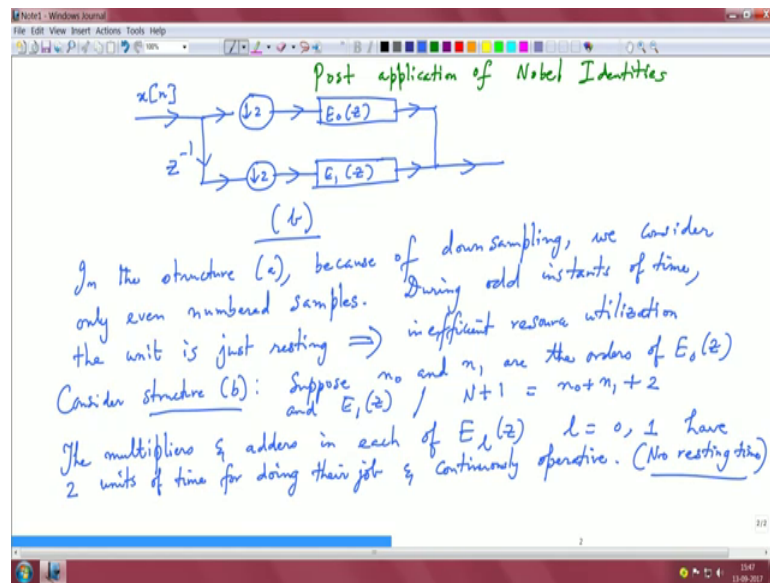 Note1 - Windows Journal
File Edit View Insert Actions Tools Help
100%
Post application of Nobel Identities
x[n]
↓2 E₀(z)
z⁻¹
↓2 E₁(z)
(b)
In the structure (a), because of downsampling, we consider
only even numbered samples. During odd instants of time,
the unit is just resting ⇒ inefficient resource utilization
Consider structure (b): Suppose n₀ and n₁ are the orders of E₀(z)
and E₁(z) / N+1 = n₀+n₁+2
The multipliers & adders in each of E_l(z) l = 0, 1 have
2 units of time for doing their job & continuously operative. (No resting time)
2/2
2
15:47
13-09-2017